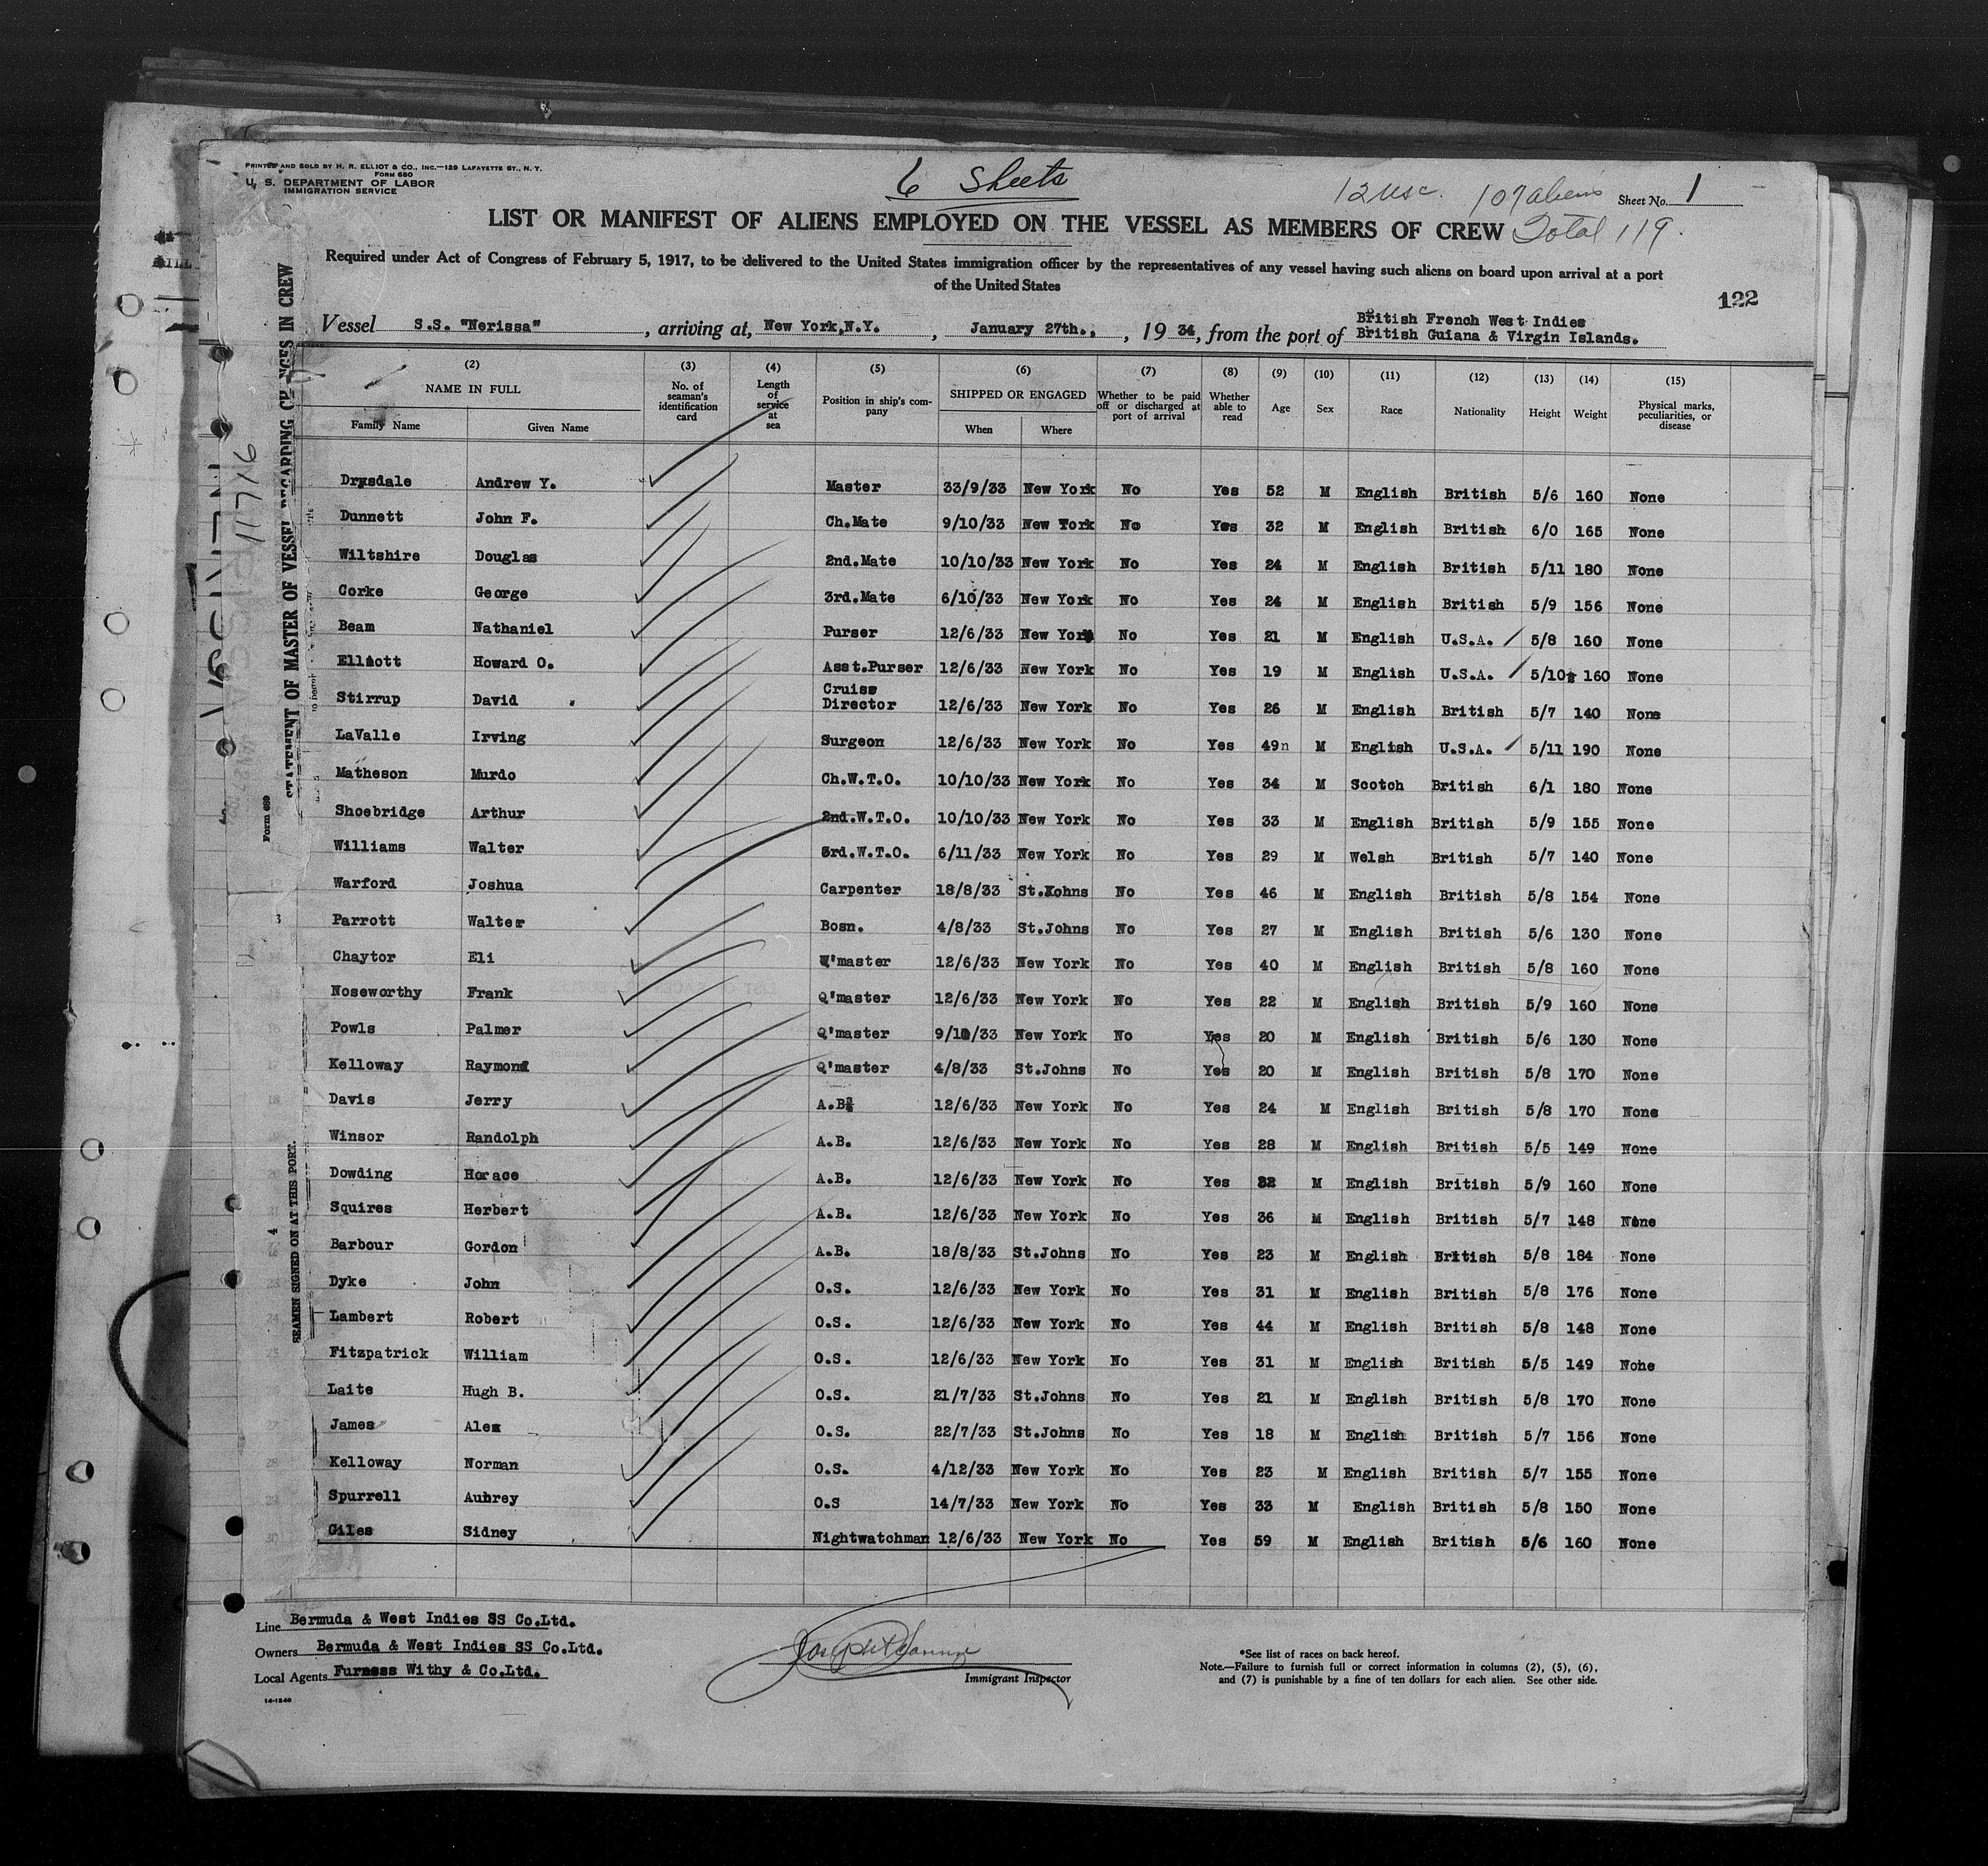 PRINTED AND SOLD BY H. R. ELLIOT & CO., INC.—129 LAFAYETTE ST., N. Y.
FORM 680
U. S. DEPARTMENT OF LABOR
IMMIGRATION SERVICE
6 Sheets
12 usc. 107 aliens
Sheet No. 1
LIST OR MANIFEST OF ALIENS EMPLOYED ON THE VESSEL AS MEMBERS OF CREW
Total 119.
Required under Act of Congress of February 5, 1917, to be delivered to the United States immigration officer by the representatives of any vessel having such aliens on board upon arrival at a port
of the United States
122
Vessel S.S. "Nerissa", arriving at, New York,N.Y., January 27th., 1934, from the port of British French West Indies
British Guiana & Virgin Islands.
(2) (3) (4) (5) (6) (7) (8) (9) (10) (11) (12) (13) (14) (15)
NAME IN FULL No. of seaman's identification card Length of service at sea Position in ship's company SHIPPED OR ENGAGED Whether to be paid off or discharged at port of arrival Whether able to read Age Sex Race Nationality Height Weight Physical marks, peculiarities, or disease
Family Name Given Name When Where
Drysdale Andrew Y. Master 33/9/33 New York No Yes 52 M English British 5/6 160 None
Dunnett John F. Ch.Mate 9/10/33 New York No Yes 32 M English British 6/0 165 None
Wiltshire Douglas 2nd.Mate 10/10/33 New York No Yes 24 M English British 5/11 180 None
Corke George 3rd.Mate 6/10/33 New York No Yes 24 M English British 5/9 156 None
Beam Nathaniel Purser 12/6/33 New York No Yes 21 M English U.S.A. 5/8 160 None
Elliott Howard O. Asst.Purser 12/6/33 New York No Yes 19 M English U.S.A. 5/10 160 None
Stirrup David Cruise Director 12/6/33 New York No Yes 26 M English British 5/7 140 None
LaValle Irving Surgeon 12/6/33 New York No Yes 49n M English U.S.A. 5/11 190 None
Matheson Murdo Ch.W.T.O. 10/10/33 New York No Yes 34 M Scotch British 6/1 180 None
Shoebridge Arthur 2nd.W.T.O. 10/10/33 New York No Yes 33 M English British 5/9 155 None
Williams Walter 3rd.W.T.O. 6/11/33 New York No Yes 29 M Welsh British 5/7 140 None
Warford Joshua Carpenter 18/8/33 St.Xohns No Yes 46 M English British 5/8 154 None
Parrott Walter Bosn. 4/8/33 St.Johns No Yes 27 M English British 5/6 130 None
Chaytor Eli Q'master 12/6/33 New York No Yes 40 M English British 5/8 160 None
Noseworthy Frank Q'master 12/6/33 New York No Yes 22 M English British 5/9 160 None
Powls Palmer Q'master 9/10/33 New York No Yes 20 M English British 5/6 130 None
Kelloway Raymond Q'master 4/8/33 St.Johns No Yes 20 M English British 5/8 170 None
Davis Jerry A.B. 12/6/33 New York No Yes 24 M English British 5/8 170 None
Winsor Randolph A.B. 12/6/33 New York No Yes 28 M English British 5/5 149 None
Dowding Horace A.B. 12/6/33 New York No Yes 32 M English British 5/9 160 None
Squires Herbert A.B. 12/6/33 New York No Yes 36 M English British 5/7 148 None
Barbour Gordon A.B. 18/8/33 St.Johns No Yes 23 M English British 5/8 184 None
Dyke John O.S. 12/6/33 New York No Yes 31 M English British 5/8 176 None
Lambert Robert O.S. 12/6/33 New York No Yes 44 M English British 5/8 148 None
Fitzpatrick William O.S. 12/6/33 New York No Yes 31 M English British 5/5 149 Nohe
Laite Hugh B. O.S. 21/7/33 St.Johns No Yes 21 M English British 5/8 170 None
James Alex O.S. 22/7/33 St.Johns No Yes 18 M English British 5/7 156 None
Kelloway Norman O.S. 4/12/33 New York No Yes 23 M English British 5/7 155 None
Spurrell Aubrey O.S 14/7/33 New York No Yes 33 M English British 5/8 150 None
Giles Sidney Nightwatchman 12/6/33 New York No Yes 59 M English British 5/6 160 None
Line Bermuda & West Indies SS Co.Ltd.
Owners Bermuda & West Indies SS Co.Ltd.
Local Agents Furness Withy & Co.Ltd.
14-1240
Immigrant Inspector
*See list of races on back hereof.
Note.—Failure to furnish full or correct information in columns (2), (5), (6),
and (7) is punishable by a fine of ten dollars for each alien. See other side.
STATEMENT OF MASTER OF VESSEL REGARDING CHANGES IN CREW
Form 689
SEAMEN SIGNED ON AT THIS PORT.
11716
3
4